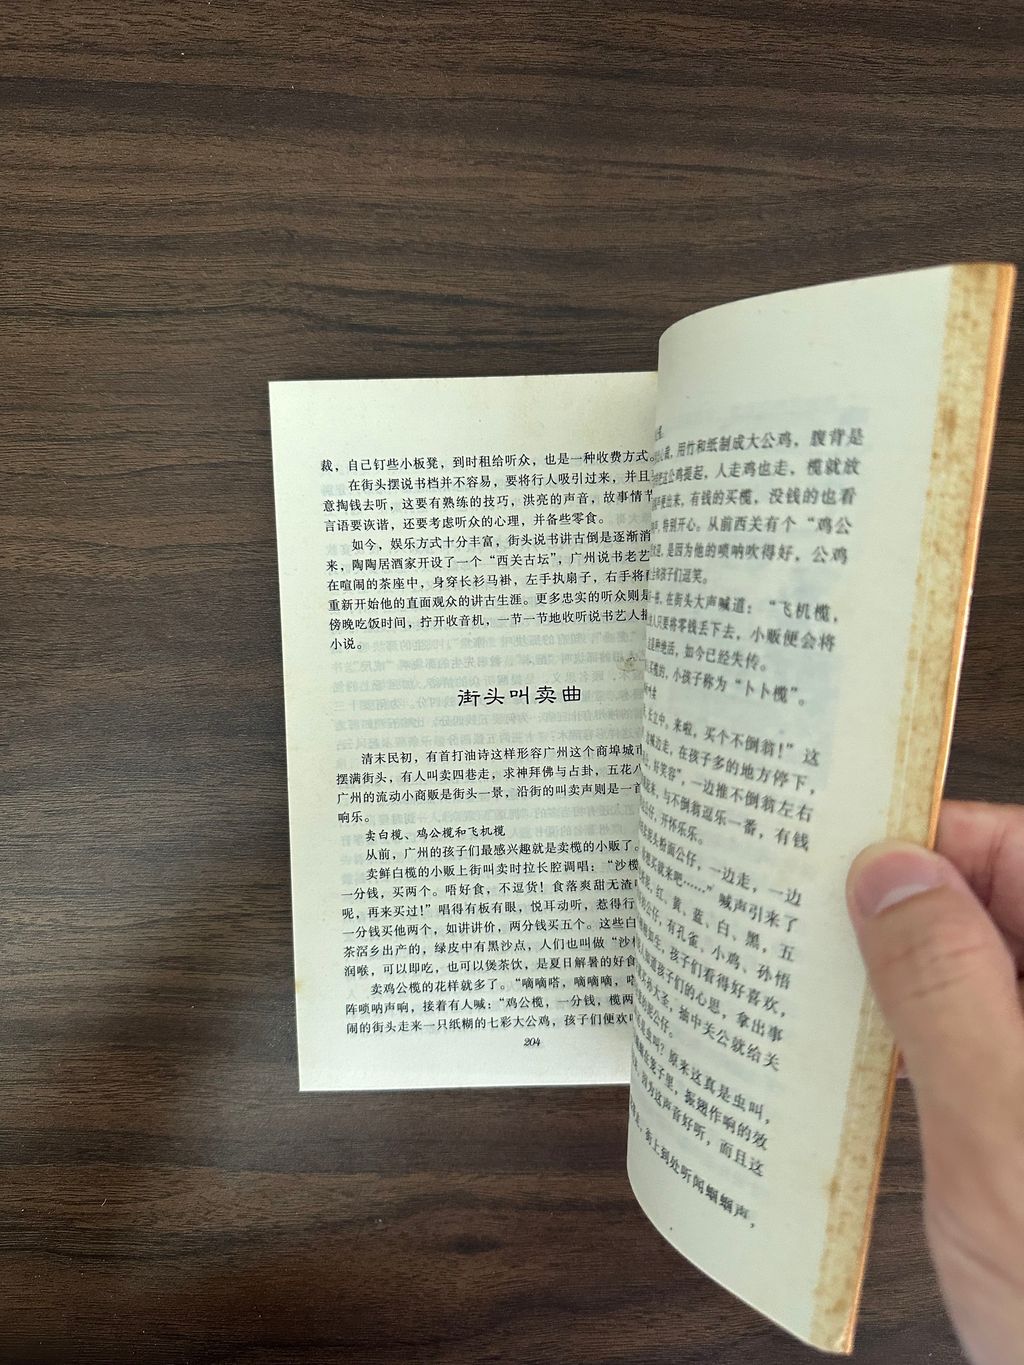 裁，自己钉些小板凳，到时租给听众，也是一种收费方式。
在街头摆说书档并不容易，要将行人吸引过来，并且
意掏钱去听，这要有熟练的技巧，洪亮的声音，故事情节
言语要诙谐，还要考虑听众的心理，并备些零食。
如今，娱乐方式十分丰富，街头说书讲古倒是逐渐消
来，陶陶居酒家开设了一个“西关古坛”，广州说书老艺
在喧闹的茶座中，身穿长衫马褂，左手执扇子，右手将
重新开始他的直面观众的讲古生涯。更多忠实的听众则是
傍晚吃饭时间，拧开收音机，一节一节地收听说书艺人
小说。
街头叫卖曲
清末民初，有首打油诗这样形容广州这个商埠城市
摆满街头，有人叫卖四巷走，求神拜佛与占卦，五花八
广州的流动小商贩是街头一景，沿街的叫卖声则是一首
响乐。
卖白榄、鸡公榄和飞机榄
从前，广州的孩子们最感兴趣就是卖榄的小贩了。
卖鲜白榄的小贩上街叫卖时拉长腔调唱：“沙榄
一分钱，买两个。唔好食，不逗货！食落爽甜无渣
呢，再来买过！”唱得有板有眼，悦耳动听，惹得行
一分钱买他两个，如讲讲价，两分钱买五个。这些白
茶滘乡出产的，绿皮中有黑沙点，人们也叫做“沙
润喉，可以即吃，也可以煲茶饮，是夏日解暑的好食
卖鸡公榄的花样就多了。“嘀嘀嗒，嘀嘀嘀，嗒
阵唢呐声响，接着有人喊：“鸡公榄，一分钱，榄两
闹的街头走来一只纸糊的七彩大公鸡，孩子们便欢
204
裁，用竹和纸制成大公鸡，腹背是
把这公鸡提起，人走鸡也走，榄就放
出来，有钱的买榄，没钱的也看
，特别开心。从前西关有个“鸡公
，是因为他的唢呐吹得好，公鸡
和孩子们逗笑。
，在街头大声喊道：“飞机榄，
只要将零钱丢下去，小贩便会将
是种绝活，如今已经失传。
买榄的，小孩子称为“卜卜榄”。
，长立中。来啦，买个不倒翁！”这
喊边走，在孩子多的地方停下，
，好笑容”，一边推不倒翁左右
起来，与不倒翁逗乐一番，有钱
公仔，开怀乐乐。
粉面公仔，一边走，一边
买就来吧……”喊声引来了
，红、黄、蓝、白、黑，五
公仔，有孔雀、小鸡、孙悟
如生，孩子们看得好喜欢，
知道孩子们的心思，拿出事
大圣，抽中关公就给关
公仔。
是虫叫？原来这真是虫叫，
在笼子里，振翅作响的效
，因为这声音好听，而且这
，街上到处听闻蝈蝈声，